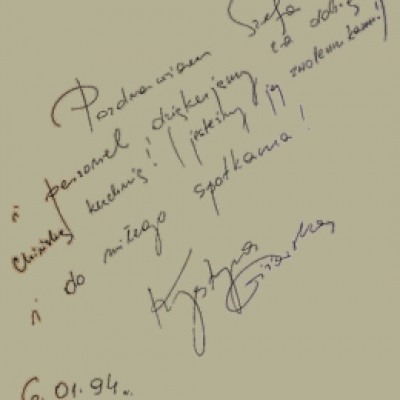 Pozdrawiam Szefa
i personel dziękujemy za dobrą
chińską kuchnię! (jesteśmy jej zwolennikami!)
i do miłego spotkania!
Krystyna
6.01.94r.